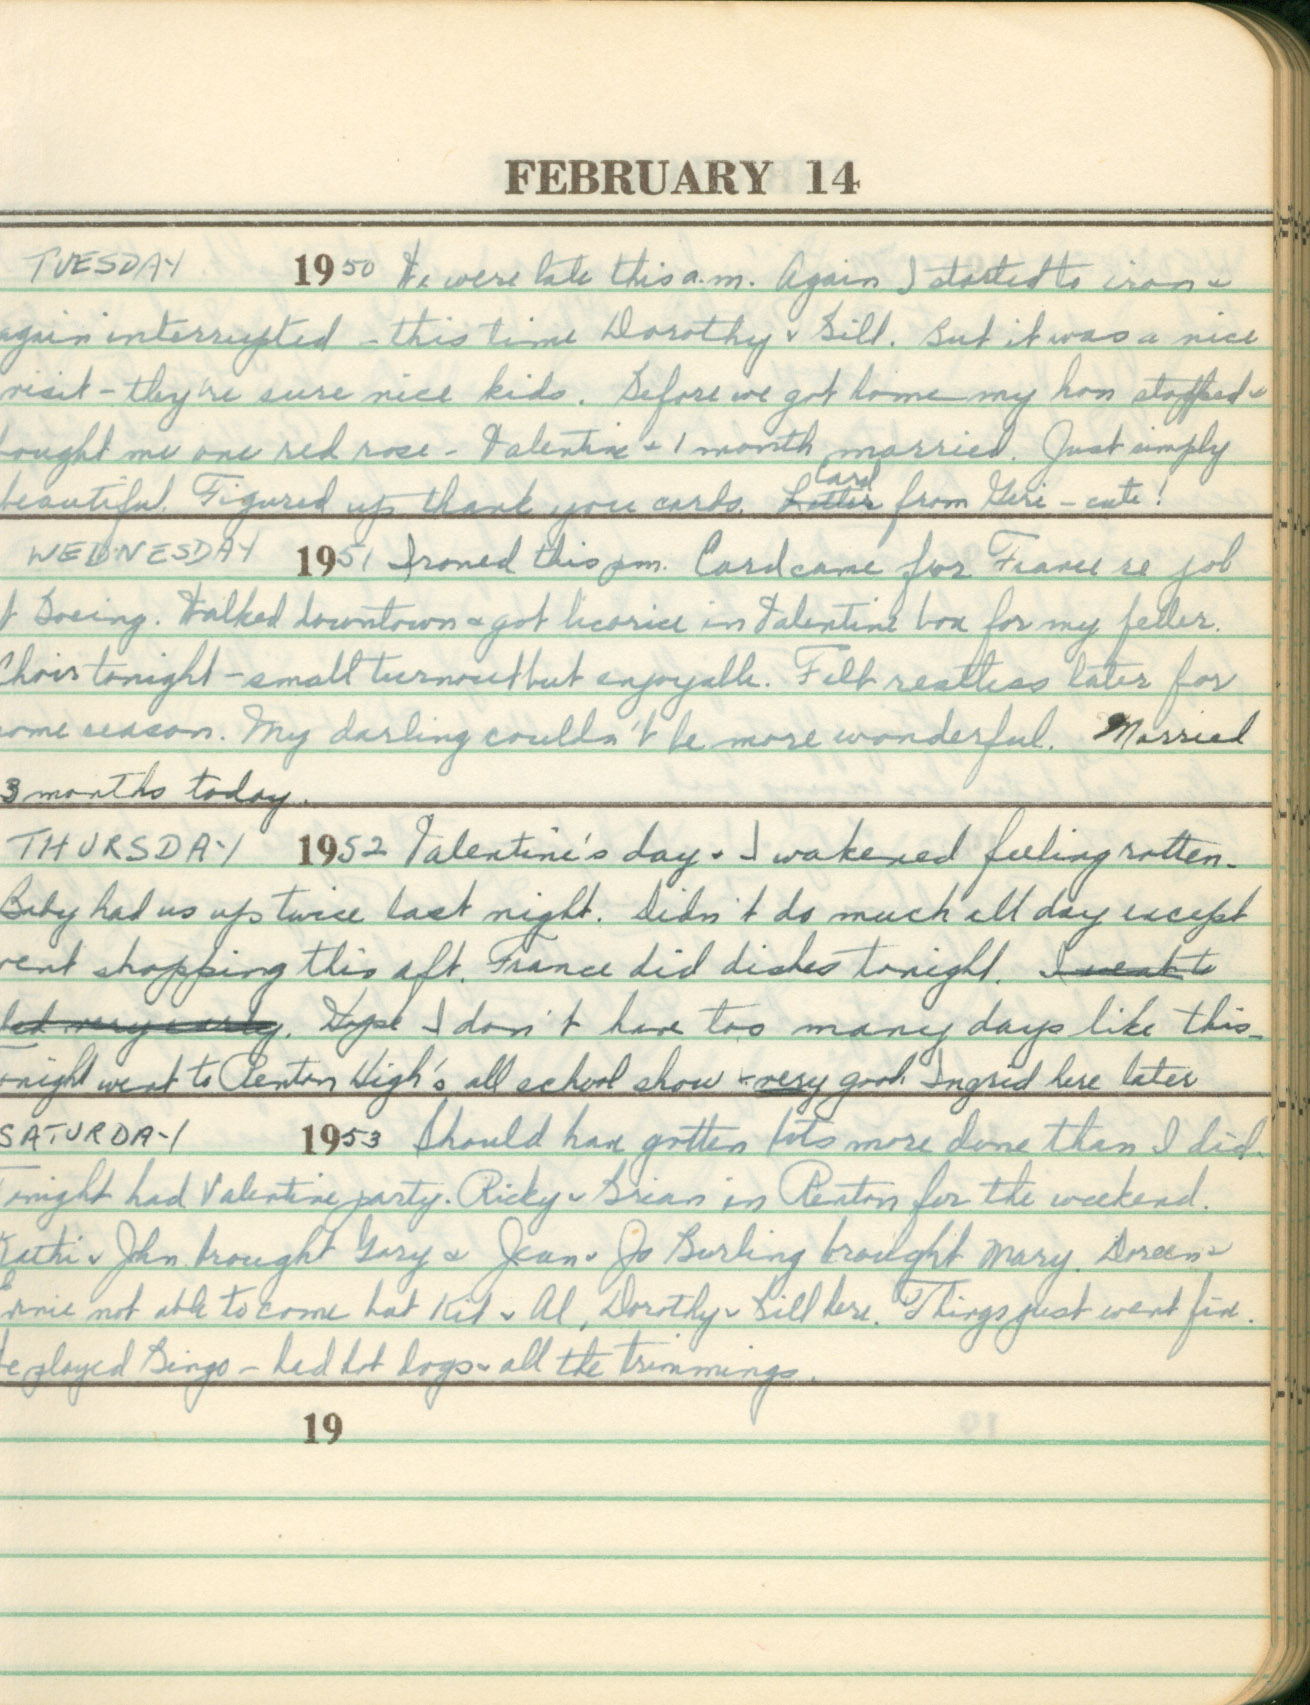 FEBRUARY 14
TUESDAY 1950 We were late this a.m. Again I started to iron &
again interrupted - this time Dorothy & Bill. But it was a nice
visit - they're sure nice kids. Before we got home my hon stopped &
bought me one red rose - Valentine & 1 month married. Just simply
beautiful. Figured up thank you cards. Letter Card from Geri - cute!
WEDNESDAY 1951 Ironed this pm. Card came for France re job
at Boeing. Walked downtown & got licorice in Valentine box for my feller.
Choir tonight - small turnout but enjoyable. Felt restless later for
some reason. My darling couldn't be more wonderful. Married
3 months today.
THURSDAY 1952 Valentine's day & I wakened feeling rotten.
Baby had us up twice last night. Didn't do much all day except
went shopping this aft. France did dishes tonight. I went to
bed very early. Hope I don't have too many days like this -
Tonight went to Renton High's all school show - very good. Ingrid here later
SATURDAY 1953 Should have gotten lots more done than I did.
Tonight had Valentine party. Ricky & Brian in Renton for the weekend.
Kathi & John brought Gary & Jean & Jo Burling brought Mary. Doreen &
Ernie not able to come but Kit & Al, Dorothy & Bill here. Things just went fine.
We played Bingo - had hot dogs & all the trimmings.
19